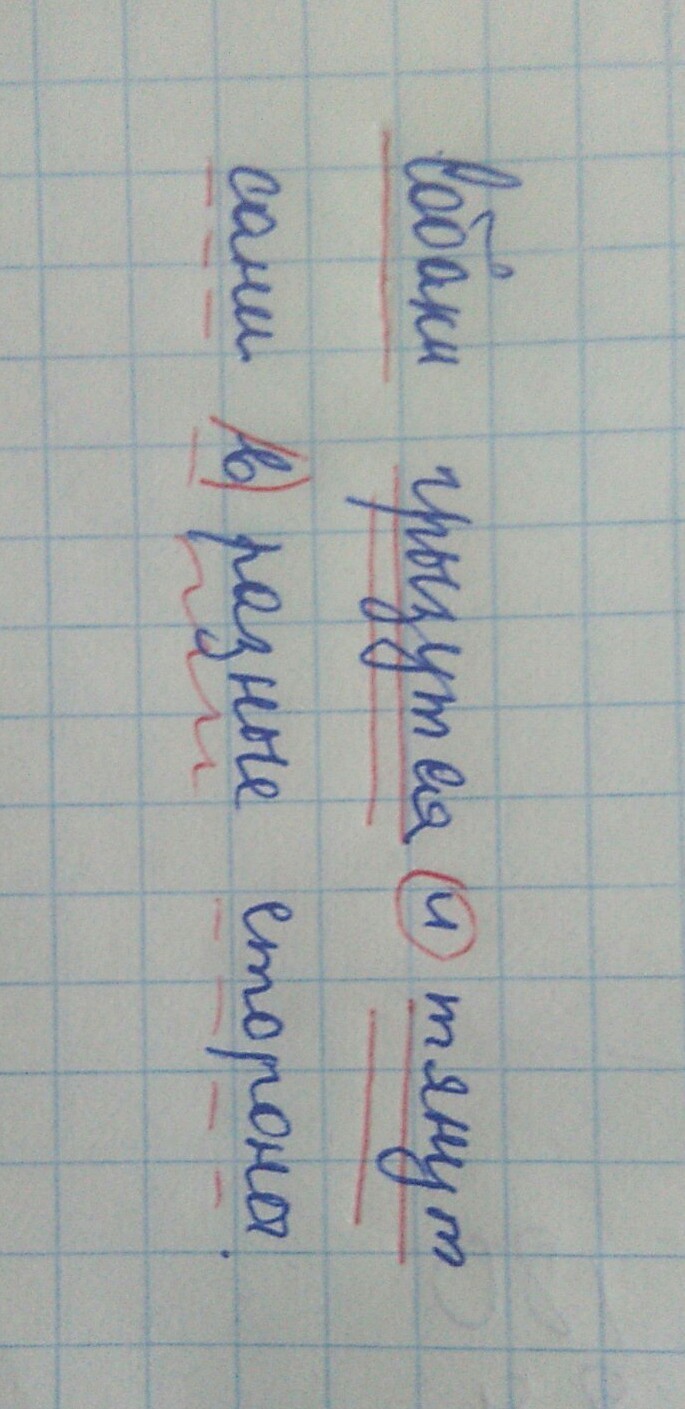 Собаки грызутся и тянут
сани в разные стороны.